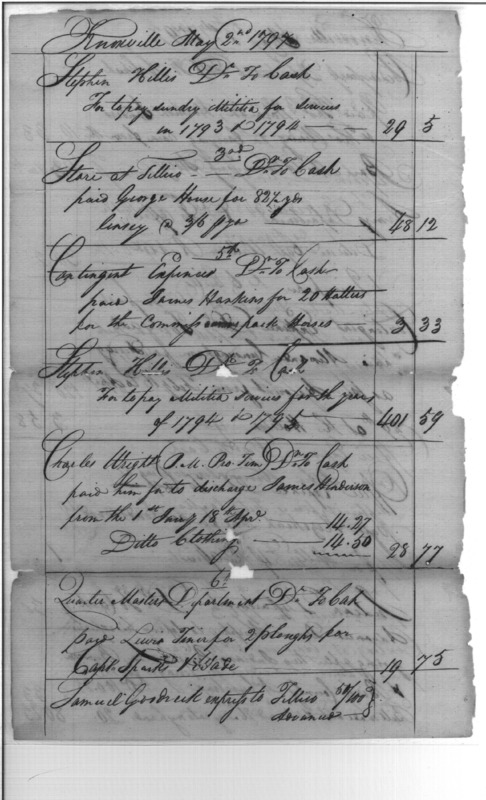 Knoxville May 2nd 1797
Stephen Hillis Dr. To Cash
For to pay sundry Militia for Services
in 1793 & 1794 29 5
3rd
Store at Tellico Dr. To Cash
paid George House for 82½ yds
Linsey @ 3/6 48 12
5th
Contingent Expences Dr. To Cash
paid James Haskins for 20 Halters
for the Commissioners pack Horses 3 33
Stephen Hillis Dr. To Cash
For to pay Militia Services for the years
of 1794 & 1795 401 59
Charles Wright P.M. Pro Tem Dr. To Cash
paid him for to discharge James Henderson
from the 1st Jany 18th Apr. 14.27
Ditto Clothing 14.50
28 77
6th
Quarter Masters Department Dr. To Cash
paid Lewis for 2 ploughs for
Capt. Sparks 19 75
Samuel Goodrich express to Tellico 50/100
Advanced